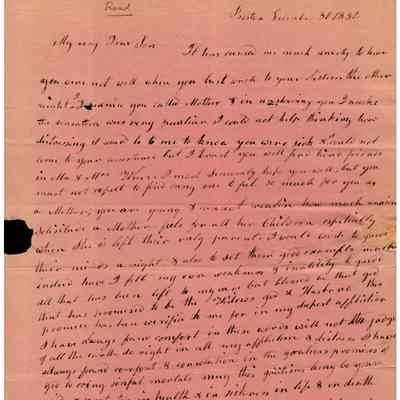 Read
Boston December
My very Dear Son
It has caused me much anxiety to hear
you were not well when you last wrote to your Sisters the other
night I you called Mother & in answering you I awoke
the sensation was very peculiar I could not help thinking how
distressing it would be to me to know you were sick & I could not
come to your assistance but I trust you will find kind friends
in Mr & Mrs I most sincerely hope you are well, but you
must not expect to find any one to feel so much for you as
a Mother, you are young & cannot how much
a Mother feels for all her Children especially
when She is left their only parent I would wish to guide
their minds a right & also to set them good example
indeed have I felt my own weakness & inability to guide
all that has been left to my care but blessed be that god
that has promised to be the Widows god & Husband this
promise has been verified to me for in my deepest affliction
I have always found comfort in these words will not the judge
of all the earth do right in all my afflictions & I have
always found comfort & consolation in the gracious promises of
god to erring sinful mortals may this gracious being be your
in health & in sickness in life & in death